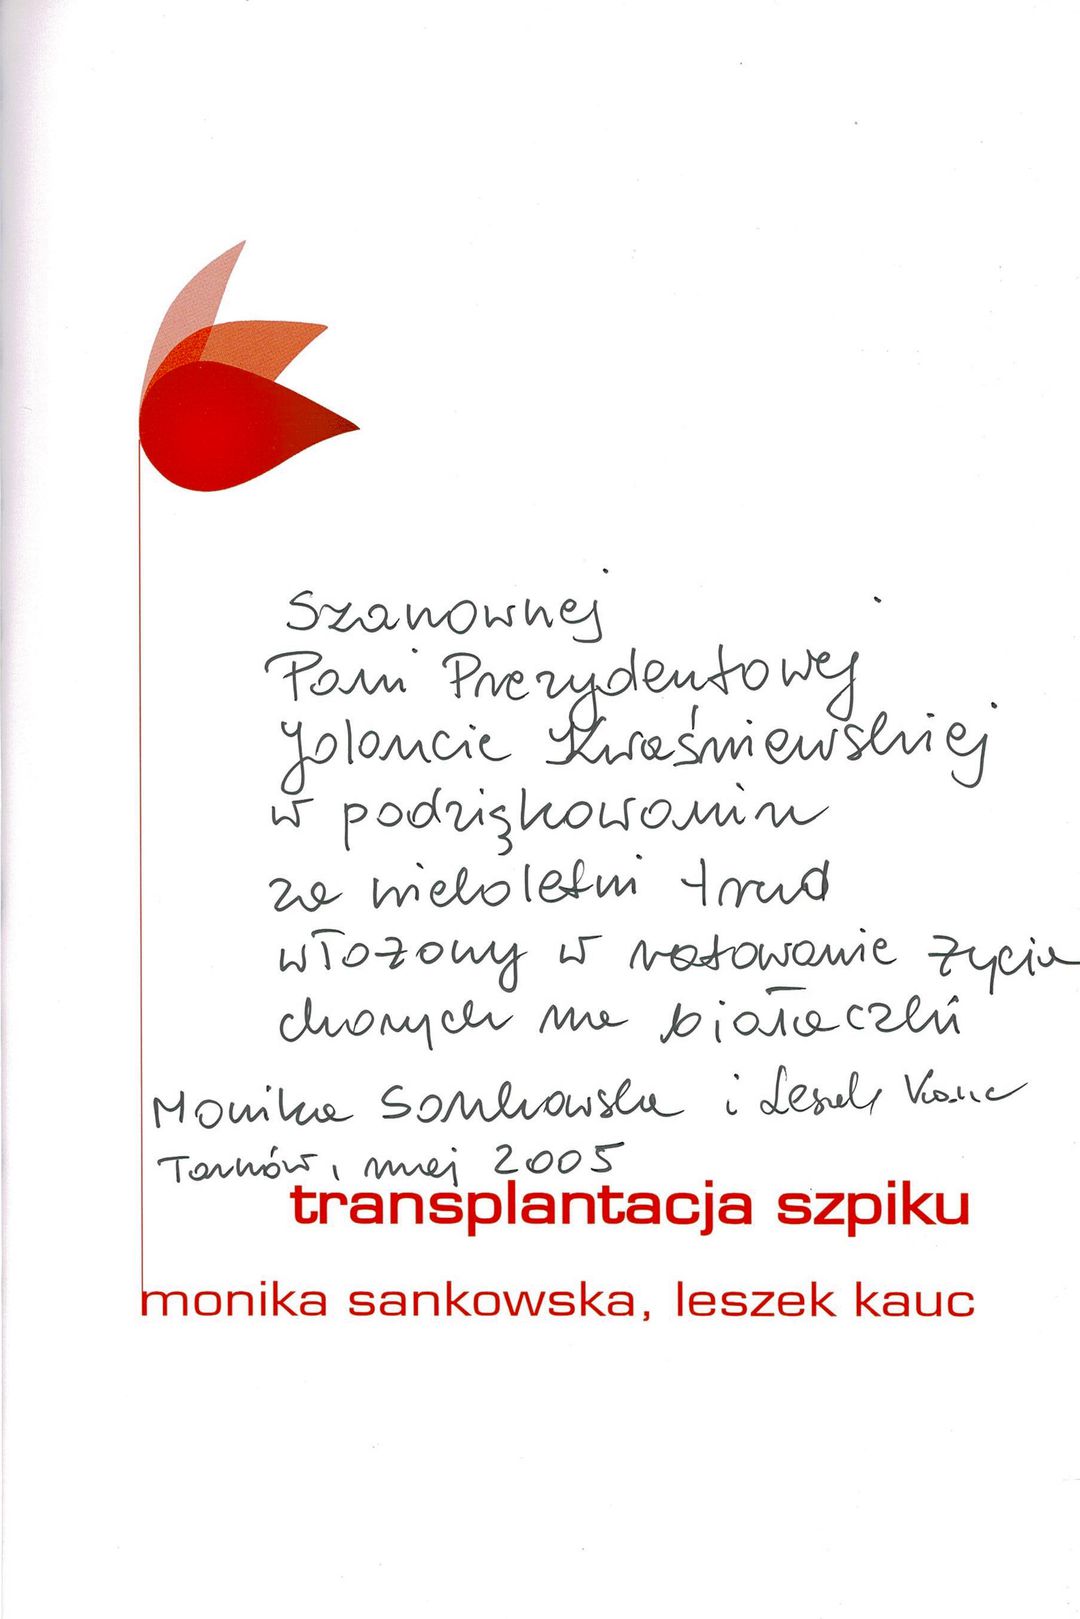 Szanownej
Pani Prezydentowej
Jolancie Kwaśniewskiej
w podziękowaniu
za wieloletni trud
włożony w ratowanie życia
chorych na białaczkę
Monika Sankowska i Leszek Kauc
Tarnów, maj 2005
transplantacja szpiku
monika sankowska, leszek kauc